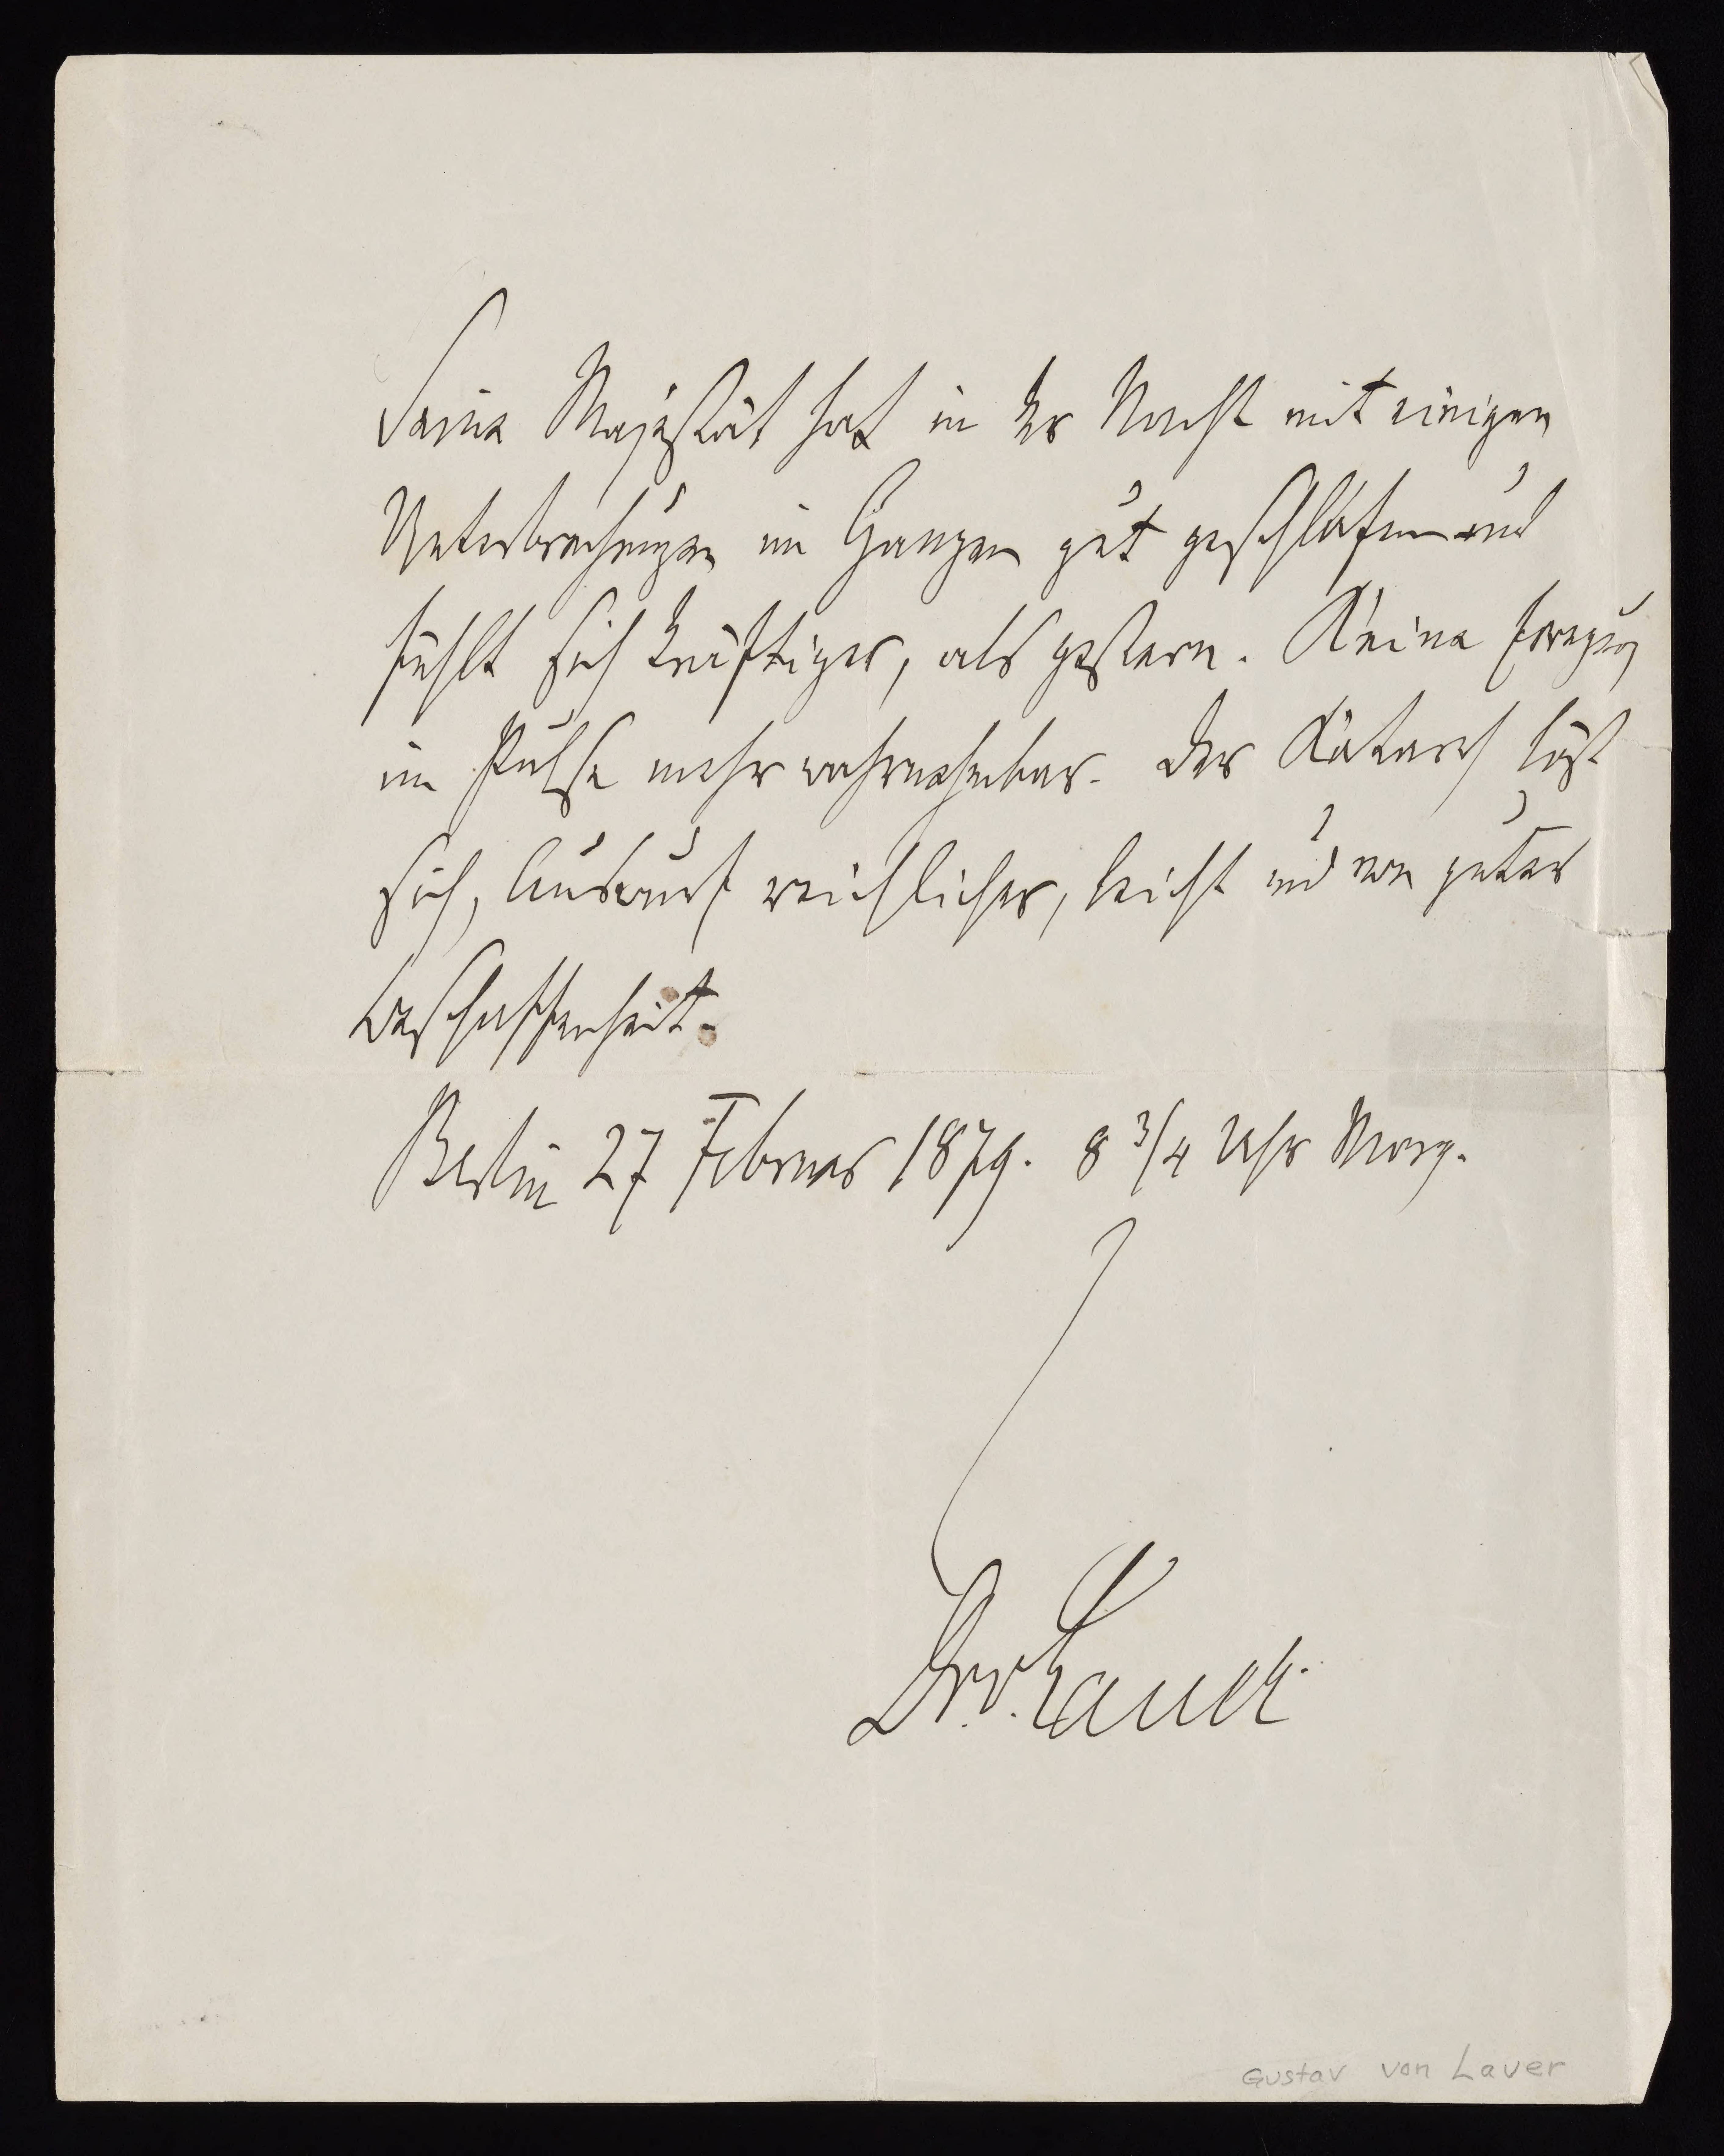 Seine Majestät hat in der Nacht mit einigen
Unterbrechungen im Ganzen gut geschlafen und
fühlt sich kräftiger, als gestern. Keine Erregung
im Pulse mehr wahrnehmbar. Der Katarrh löst
sich, Auswurf reichlicher, leicht und von guter
Beschaffenheit.
Berlin 27 Februar 1879. 8 3/4 Uhr Morg.
Dr. v. Lauer.
Gustav von Laver